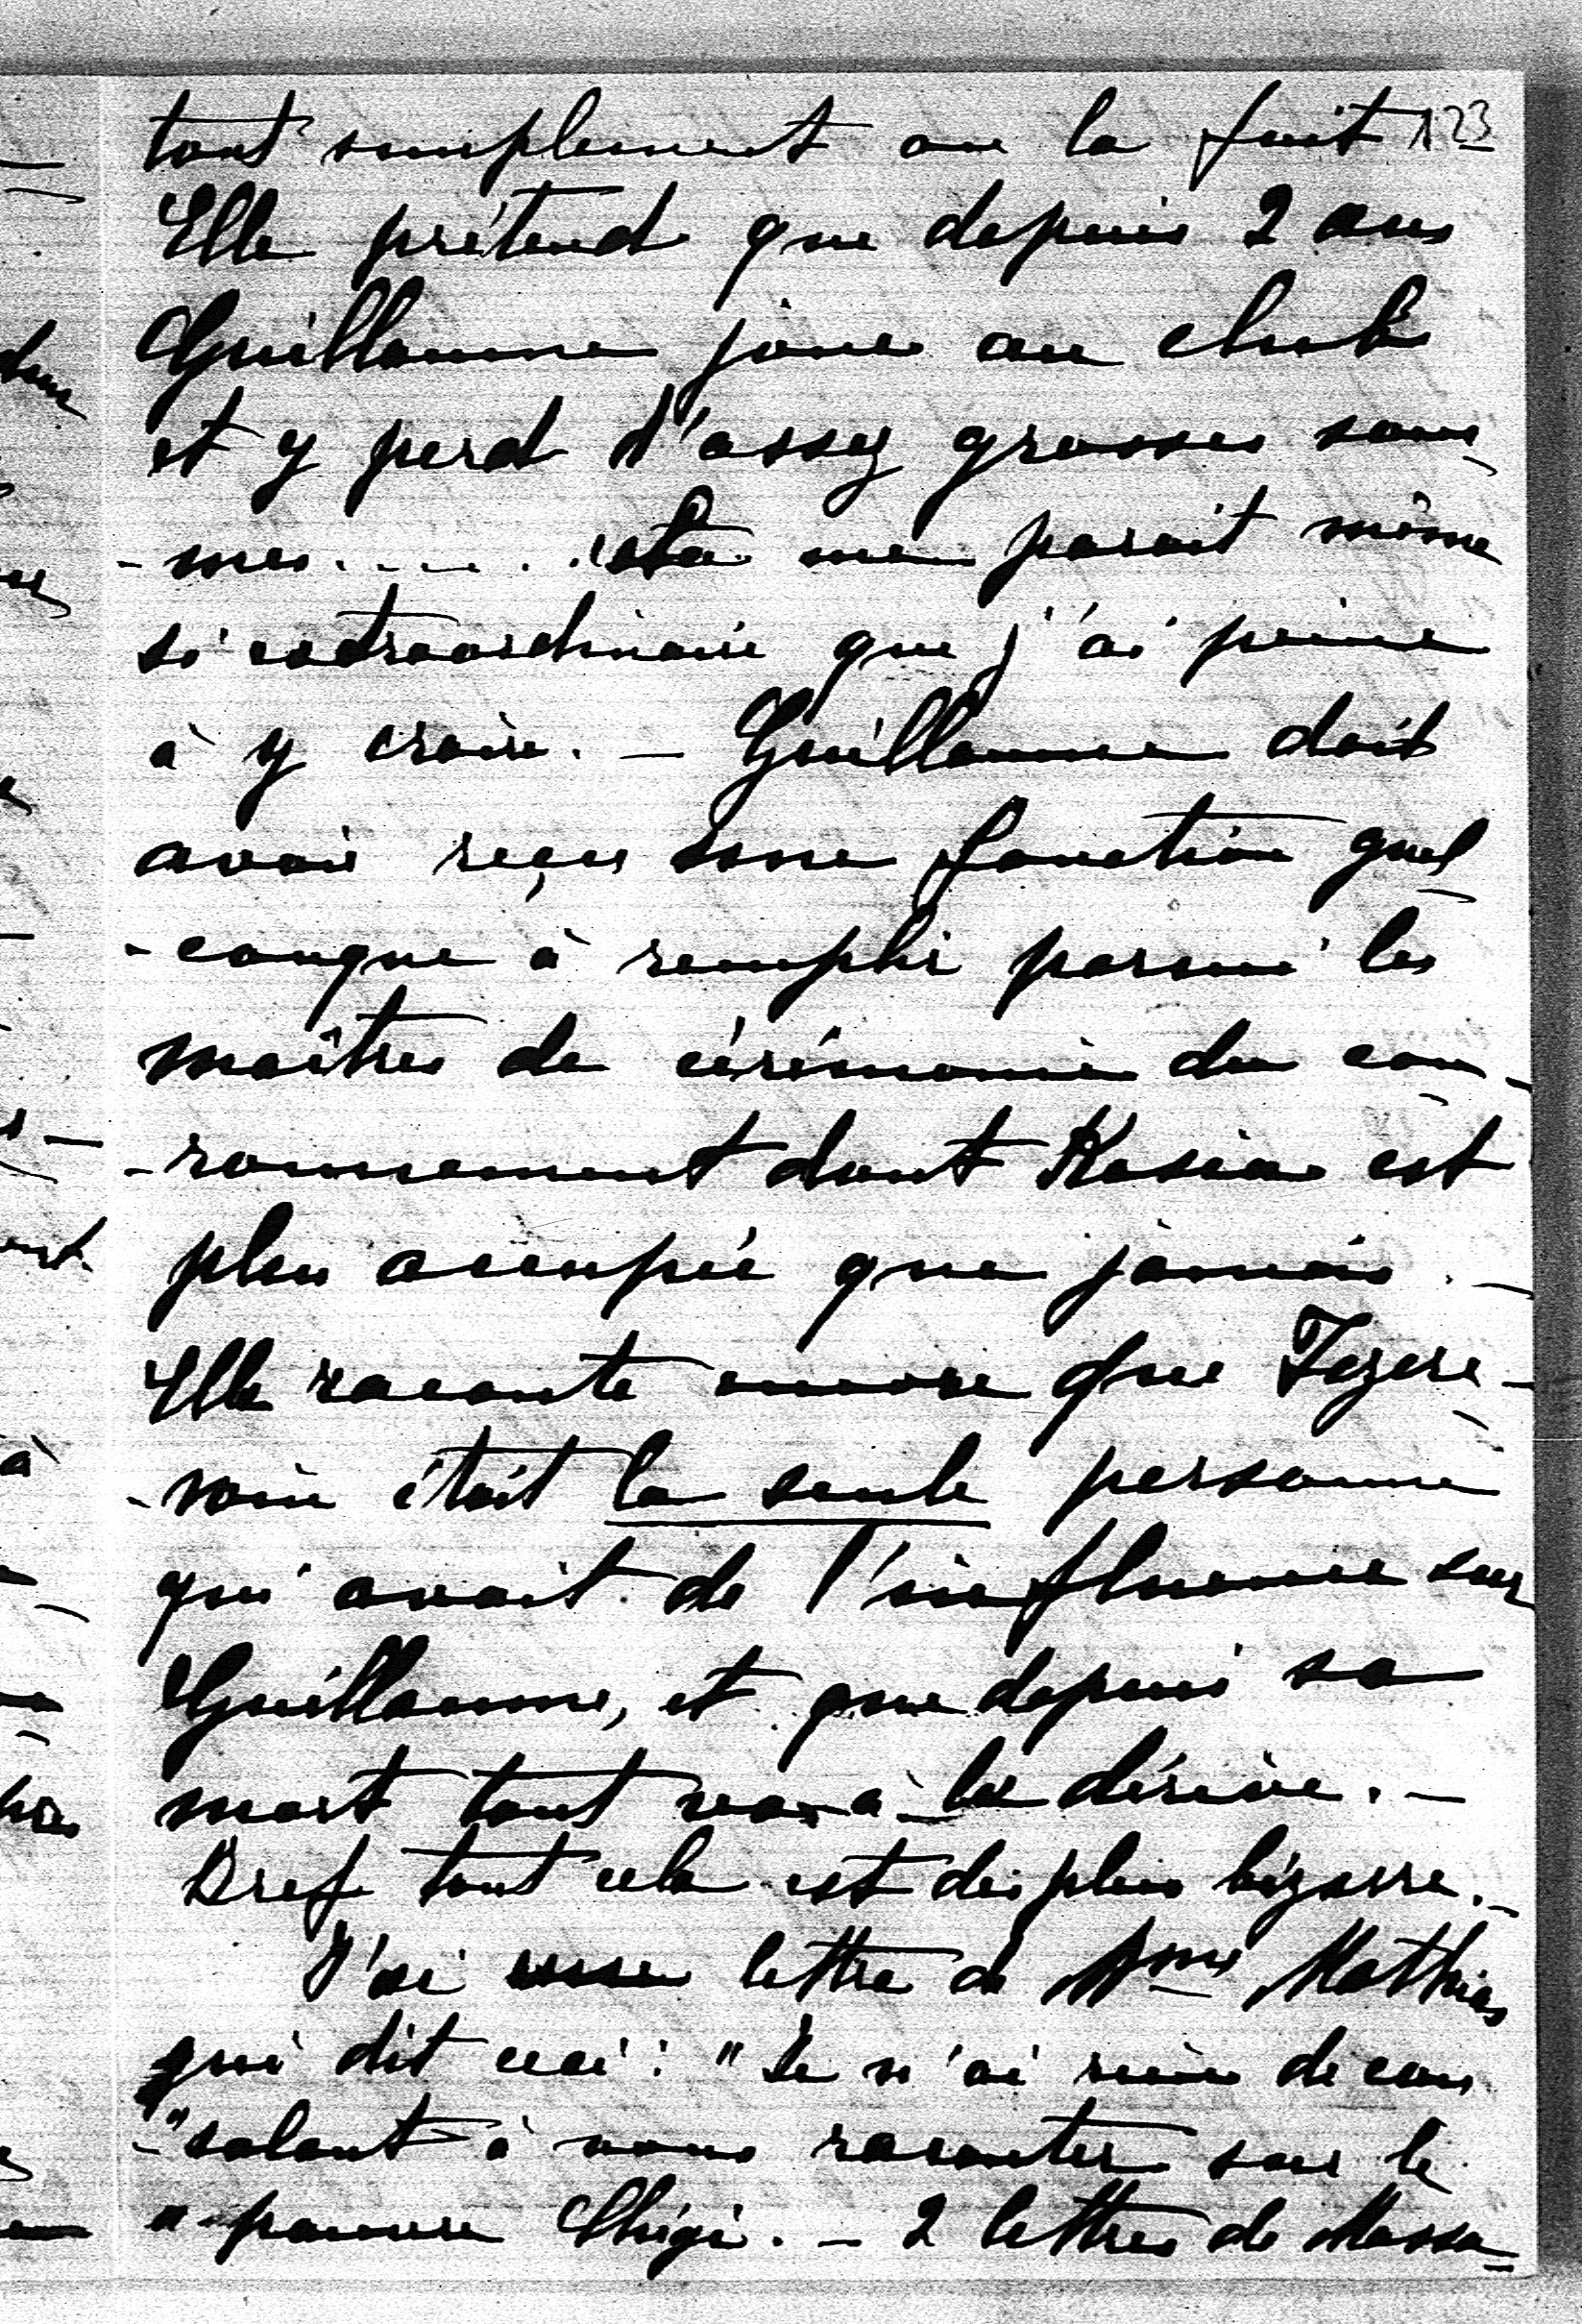 tout simplement on la fuit 123
Elle prétend que depuis 2 ans
Guillaume joue au club
et y perd d'assez grosses som-
-mes..... cela me parait même
si extraordinaire que j'ai peine
à y croire. — Guillaume doit
avoir reçu une fonction quel
-conque à remplir parmi les
maîtres de cérémonie du cou-
-ronnement dont Kasia est
plus occupée que jamais. —
Elle raconte encore que Jezere-
-wie était la seule personne
qui avait de l'influence sur
Guillaume, et que depuis sa
mort tout va à la dérive. —
Bref tout cela est des plus bizarre. —
J'ai une lettre de Mme Mathias
qui dit ceci: "Je n'ai rien de con
-"solant à vous raconter sur le
" pauvre Chigi. — 2 lettres de Massa-